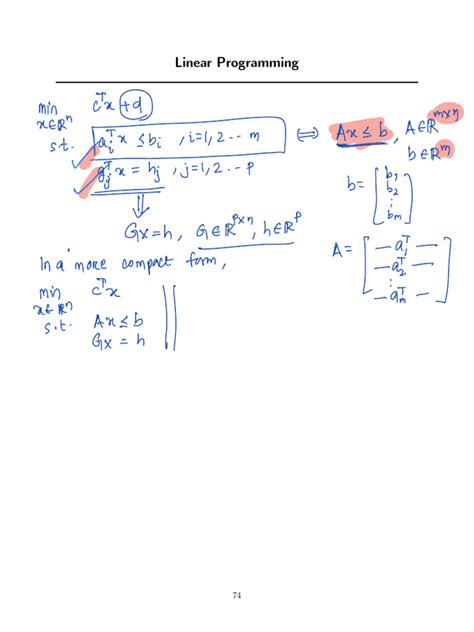 Linear Programming
min cᵀx + d
x∈ℝⁿ
s.t. aᵢᵀx ≤ bᵢ , i=1,2 -- m ⟺ Ax ≤ b , A∈ℝᵐˣⁿ
b∈ℝᵐ
gⱼᵀx = hⱼ , j=1,2 -- p
b = [b₁ b₂ ⋮ bₘ]
⇓
Gx=h, G∈ℝᵖˣⁿ, h∈ℝᵖ
A = [— a₁ᵀ — — a₂ᵀ — ⋮ — aₘᵀ —]
In a more compact form,
min cᵀx
x∈ℝⁿ
s.t. Ax ≤ b
Gx = h
74